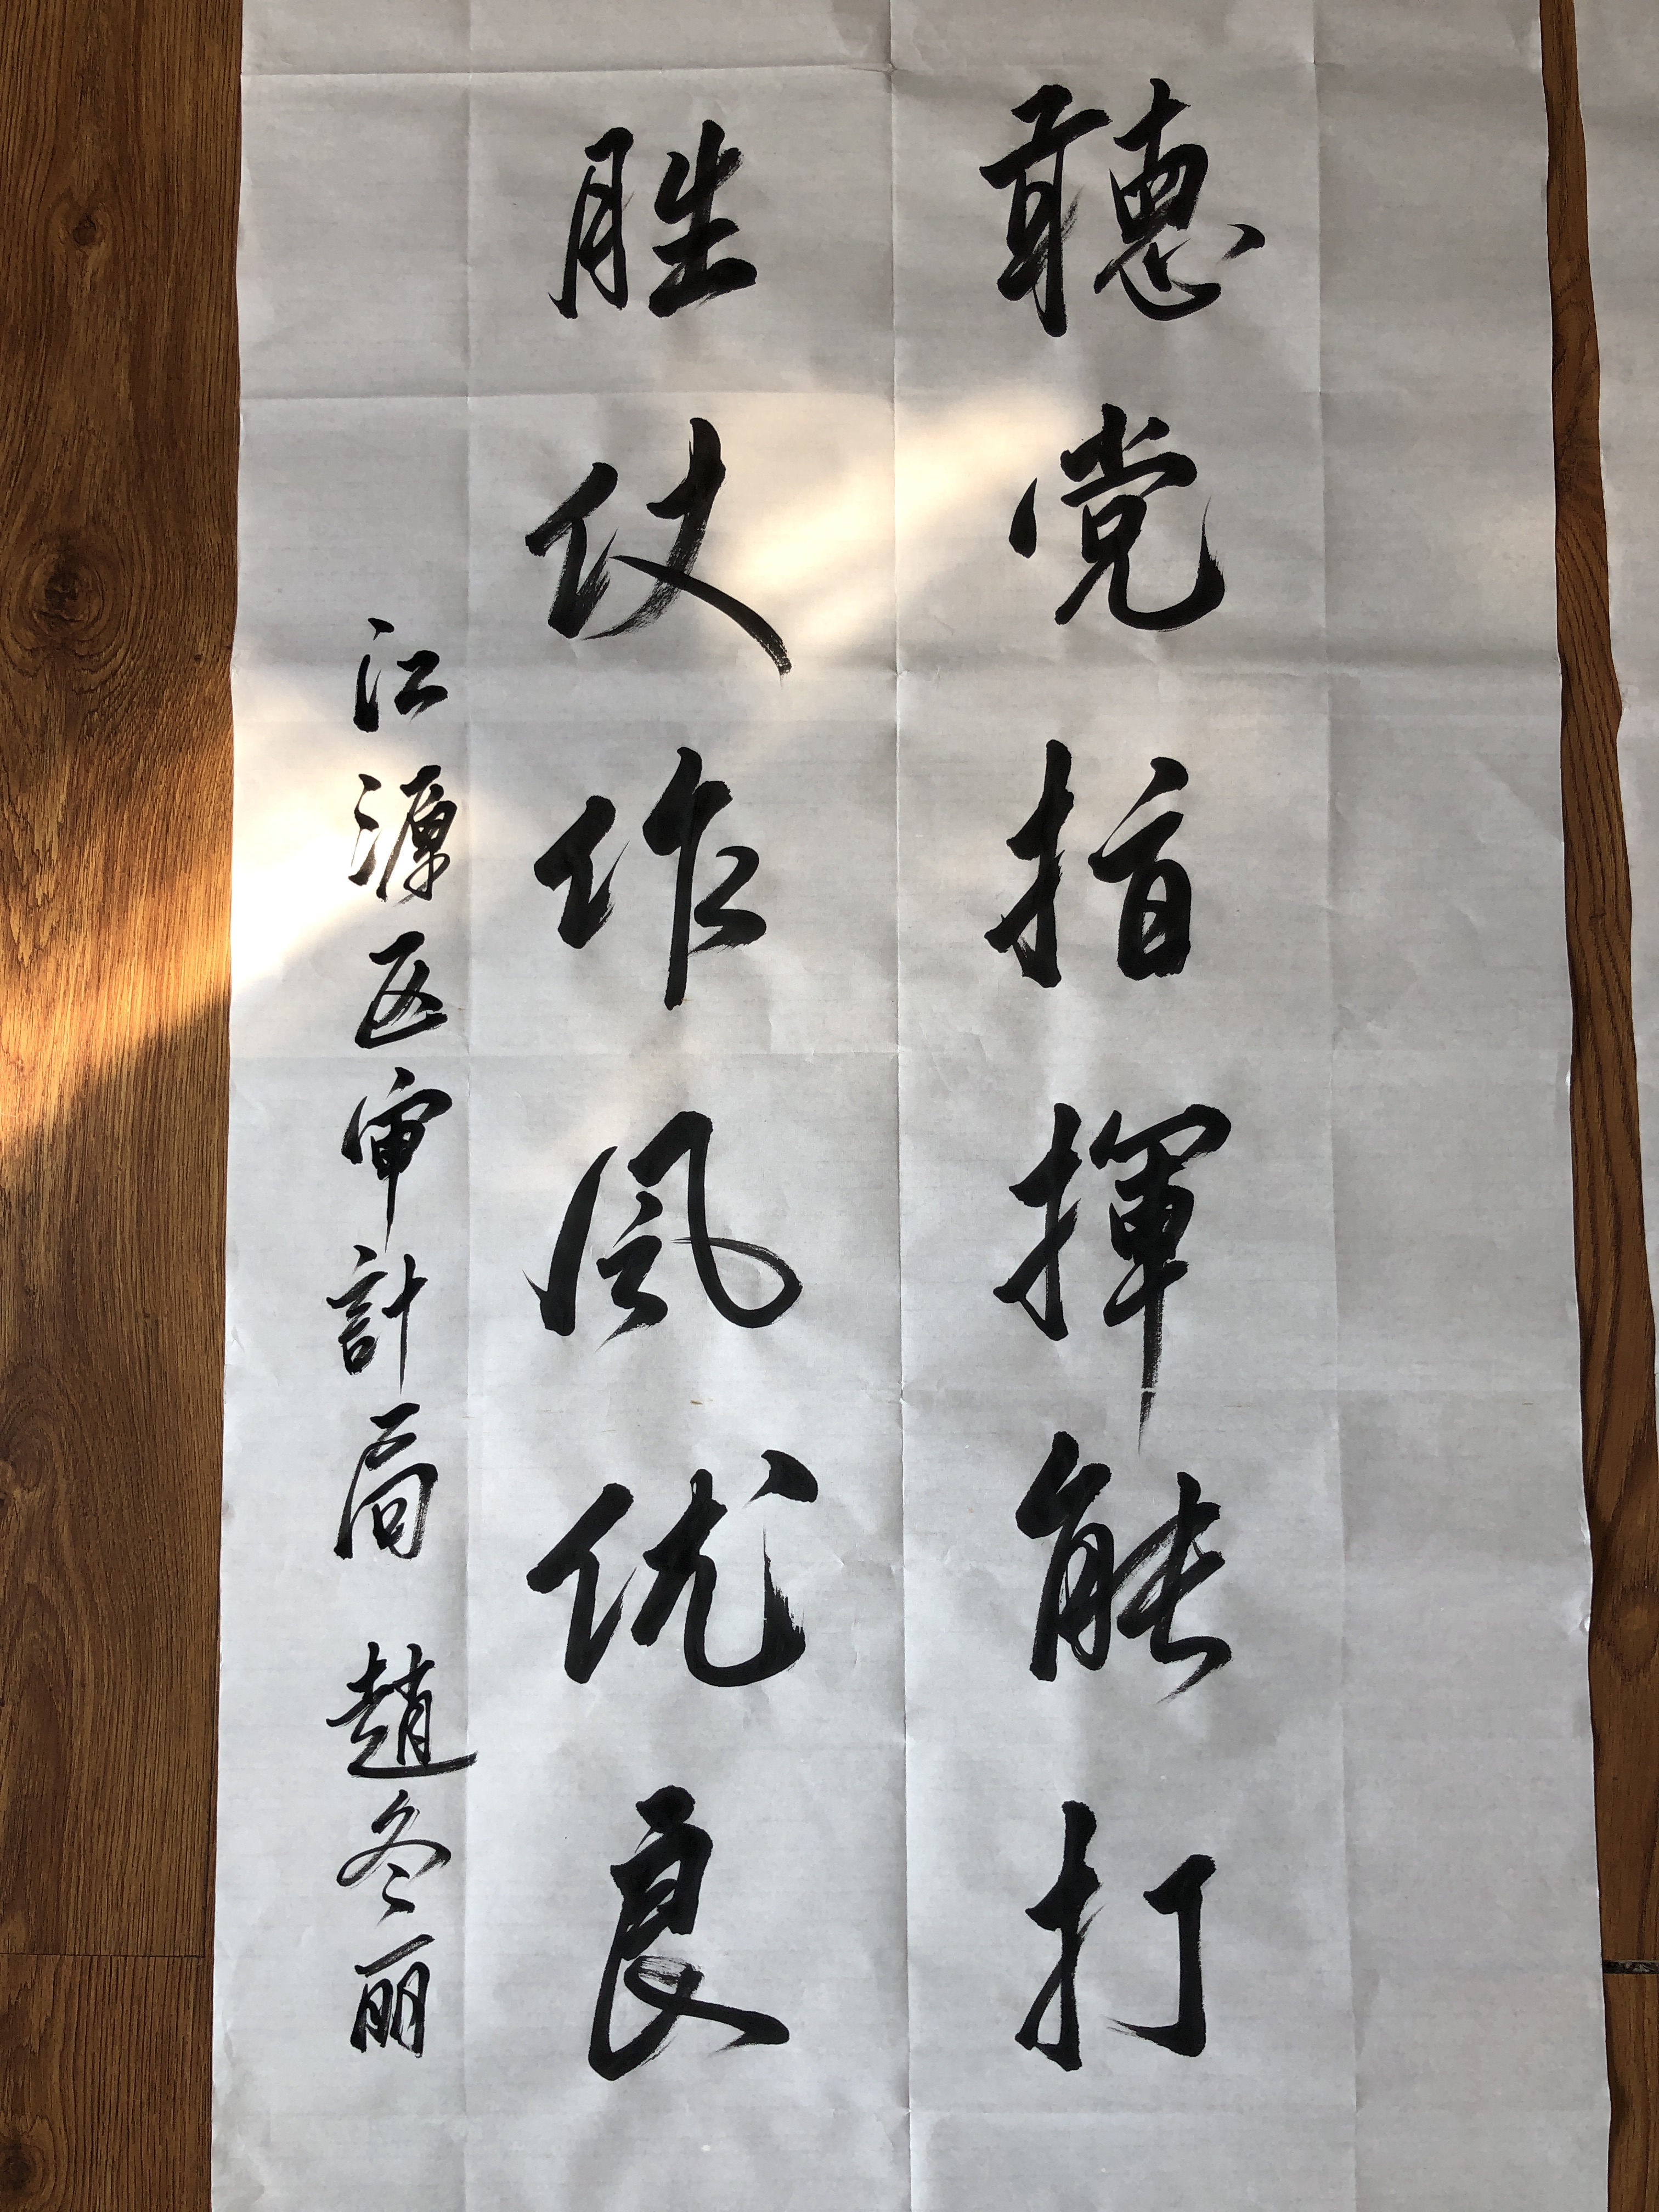 聽党指揮能打
胜仗作风优良
江源区审計局 趙冬丽